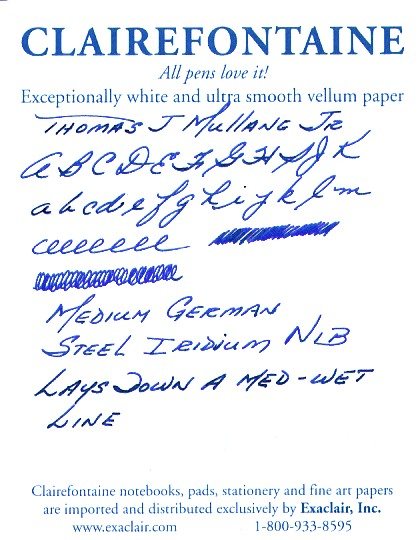 CLAIREFONTAINE
All pens love it!
Exceptionally white and ultra smooth vellum paper
THOMAS J MULLANE JR
A B C D E F G H I J K
a b c d e f g h i j k l m
eeeeeeee
MEDIUM GERMAN
STEEL IRIDIUM NIB
LAYS DOWN A MED-WET
LINE
Clairefontaine notebooks, pads, stationery and fine art papers
are imported and distributed exclusively by Exaclair, Inc.
www.exaclair.com 1-800-933-8595